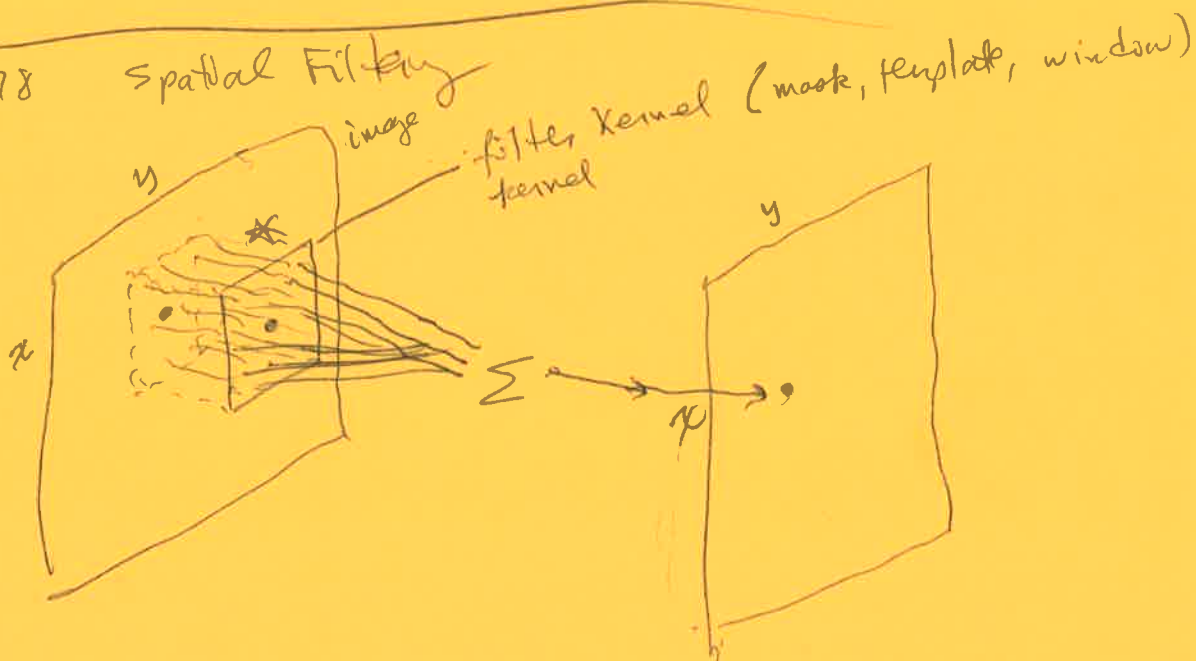 78 Spatial Filtering
image
filter kernel (mask, template, window)
kernel
y
x
*
Σ
y
x